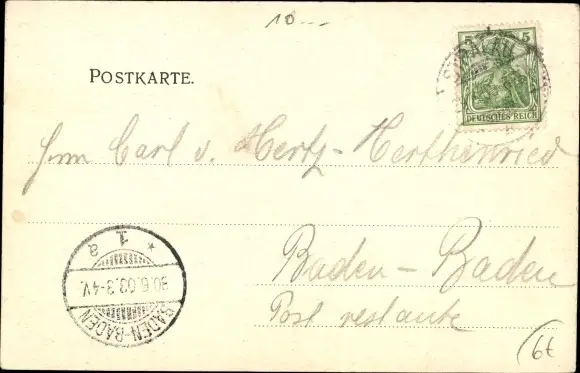 10.--
POSTKARTE.
5 5
DEUTSCHES REICH
Herrn Carl v. Hertz-Hertenried
Baden-Baden
Post restante
BADEN-BADEN
30.6.03.3-4V.
* 1 a
6t